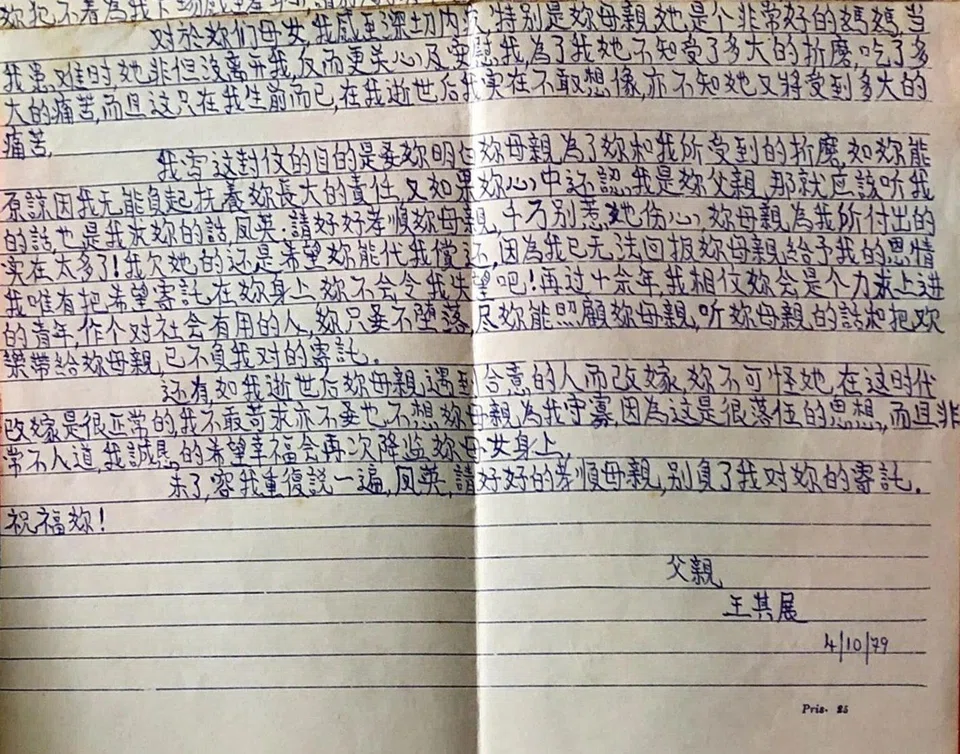 妳犯不着為我下場感
对於妳们母女,我感至深切内疚,特別是妳母親,她是个非常好的媽媽,当
我患难时,她非但没离开我,反而更关心及安慰我,為了我她不知受了多大的折磨,吃了多
大的痛苦,而且这只在我生前而已,在我逝世后我实在不敢想像,亦不知她又将受到多大的
痛苦,
我写这封信的目的是要妳明白妳母親為了妳和我所受到的折磨,如妳能
原諒因我无能負起扶養妳長大的責任,又如果妳心中还認我是妳父親,那就应該听我
的話,也是我求妳的話,凤英,請好好孝順妳母親,千万別惹她伤心,妳母親為我所付出的
实在太多了!我欠她的还是希望妳能代我償还,因為我已无法回报妳母親給予我的恩情
我唯有把希望寄託在妳身上,妳不会令我失望吧!再过十余年,我相信妳会是个力求上进
的青年,作个对社会有用的人,妳只要不墮落,尽妳能照顧妳母親,听妳母親的話和把欢
樂帶給妳母親,已不負我对的寄託。
还有如我逝世后妳母親遇到合意的人而改嫁,妳不可怪她,在这时代
改嫁是很正常的,我不敢苛求亦不要也不想妳母親為我守寡,因為这是很落伍的思想,而且非
常不人道,我誠懇的希望幸福会再次降临妳母女身上,
末了,容我重復説一遍,凤英,請好好的孝順母親,別負了我对妳的寄託。
祝福妳!
父親
王其展
4/10/79
Pris. 25